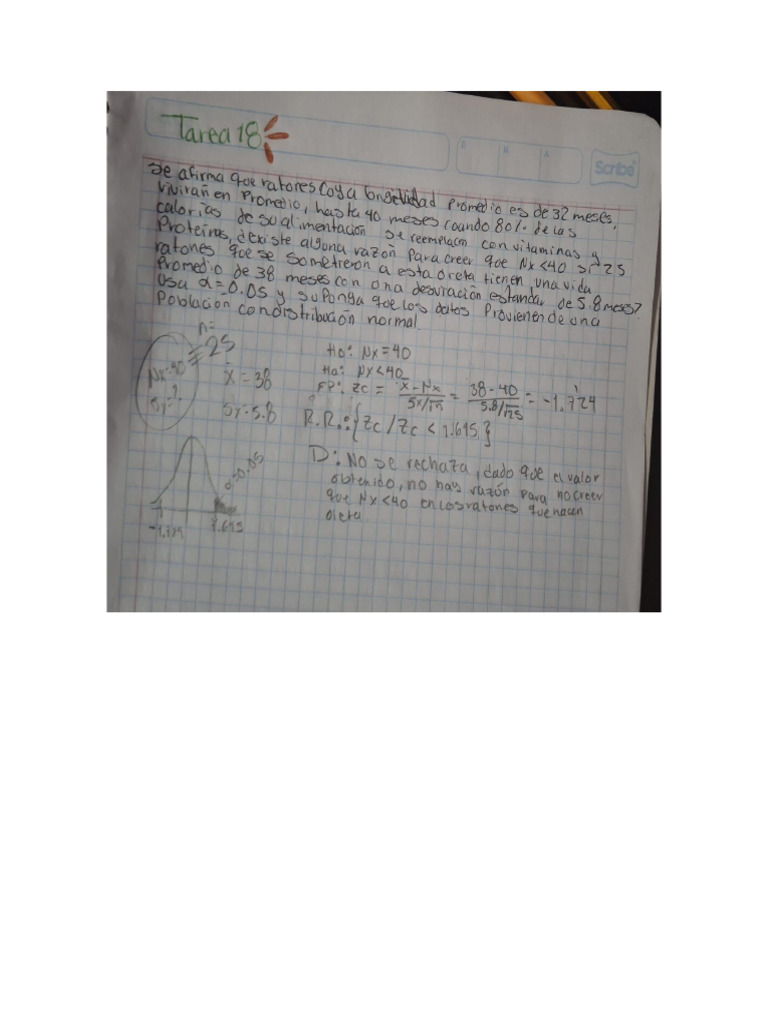 Tarea 18
D M A
Scribe
Se afirma que ratores coya longetividad Promedio es de 32 meses,
vivirañ en Promedio, hasta 40 meses cuando 80% de las
calorías de su alimentación se reemplacan con vitaminas y
Proteinas, ¿existe alguna razón Para creer que Nx<40 si 25
ratones que se sometreron a esta dieta tienen una vida
Promedio de 38 meses con ona desviración estandar de 5.8 meses?
Usa α=0.05 y suponga que los datos Provienen de una
Población con distribución normal.
n=
25
Nx=40
σx=?
x̄ = 38
Sx=5.8
Ho: Nx=40
Ha: Nx<40
EP: Zc = x̄-Nx / Sx/√n = 38-40 / 5.8/√25 = -1.724
R.R.: {Zc/Zc < 1.645}
α=0.05
-1.724 1.645
D: No se rechaza, dado que el valor
obtenido, no hay razón para no creer
que Nx<40 en los ratones que hacen
dieta